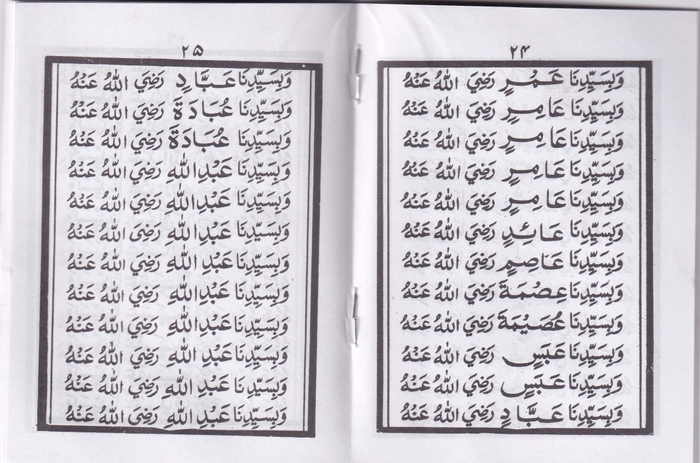 ۲۴
وَبِسَيِّدِنَا عَمْرٍ رَضِيَ اللهُ عَنْهُ
وَبِسَيِّدِنَا عَامِرٍ رَضِيَ اللهُ عَنْهُ
وَبِسَيِّدِنَا عَامِرٍ رَضِيَ اللهُ عَنْهُ
وَبِسَيِّدِنَا عَامِرٍ رَضِيَ اللهُ عَنْهُ
وَبِسَيِّدِنَا عَامِرٍ رَضِيَ اللهُ عَنْهُ
وَبِسَيِّدِنَا عَائِدٍ رَضِيَ اللهُ عَنْهُ
وَبِسَيِّدِنَا عَاصِمٍ رَضِيَ اللهُ عَنْهُ
وَبِسَيِّدِنَا عِصْمَةَ رَضِيَ اللهُ عَنْهُ
وَبِسَيِّدِنَا عُصَيْمَةَ رَضِيَ اللهُ عَنْهُ
وَبِسَيِّدِنَا عَبَسٍ رَضِيَ اللهُ عَنْهُ
وَبِسَيِّدِنَا عَبَسٍ رَضِيَ اللهُ عَنْهُ
وَبِسَيِّدِنَا عَبَّادٍ رَضِيَ اللهُ عَنْهُ
۲۵
وَبِسَيِّدِنَا عَبَّادٍ رَضِيَ اللهُ عَنْهُ
وَبِسَيِّدِنَا عُبَادَةَ رَضِيَ اللهُ عَنْهُ
وَبِسَيِّدِنَا عُبَادَةَ رَضِيَ اللهُ عَنْهُ
وَبِسَيِّدِنَا عَبْدِ اللهِ رَضِيَ اللهُ عَنْهُ
وَبِسَيِّدِنَا عَبْدِ اللهِ رَضِيَ اللهُ عَنْهُ
وَبِسَيِّدِنَا عَبْدِ اللهِ رَضِيَ اللهُ عَنْهُ
وَبِسَيِّدِنَا عَبْدِ اللهِ رَضِيَ اللهُ عَنْهُ
وَبِسَيِّدِنَا عَبْدِ اللهِ رَضِيَ اللهُ عَنْهُ
وَبِسَيِّدِنَا عَبْدِ اللهِ رَضِيَ اللهُ عَنْهُ
وَبِسَيِّدِنَا عَبْدِ اللهِ رَضِيَ اللهُ عَنْهُ
وَبِسَيِّدِنَا عَبْدِ اللهِ رَضِيَ اللهُ عَنْهُ
وَبِسَيِّدِنَا عَبْدِ اللهِ رَضِيَ اللهُ عَنْهُ